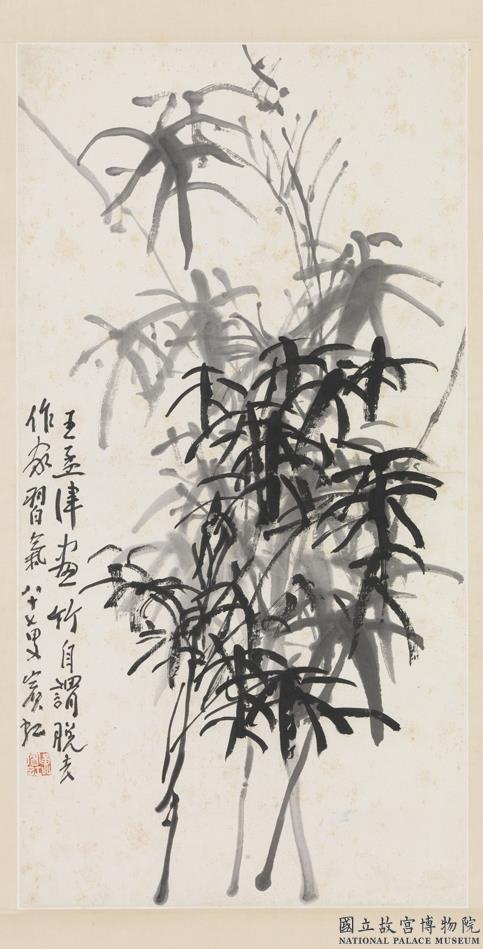 王孟津畫竹自謂脫去
作家習氣 八十七叟 賓虹
國立故宮博物院
NATIONAL PALACE MUSEUM